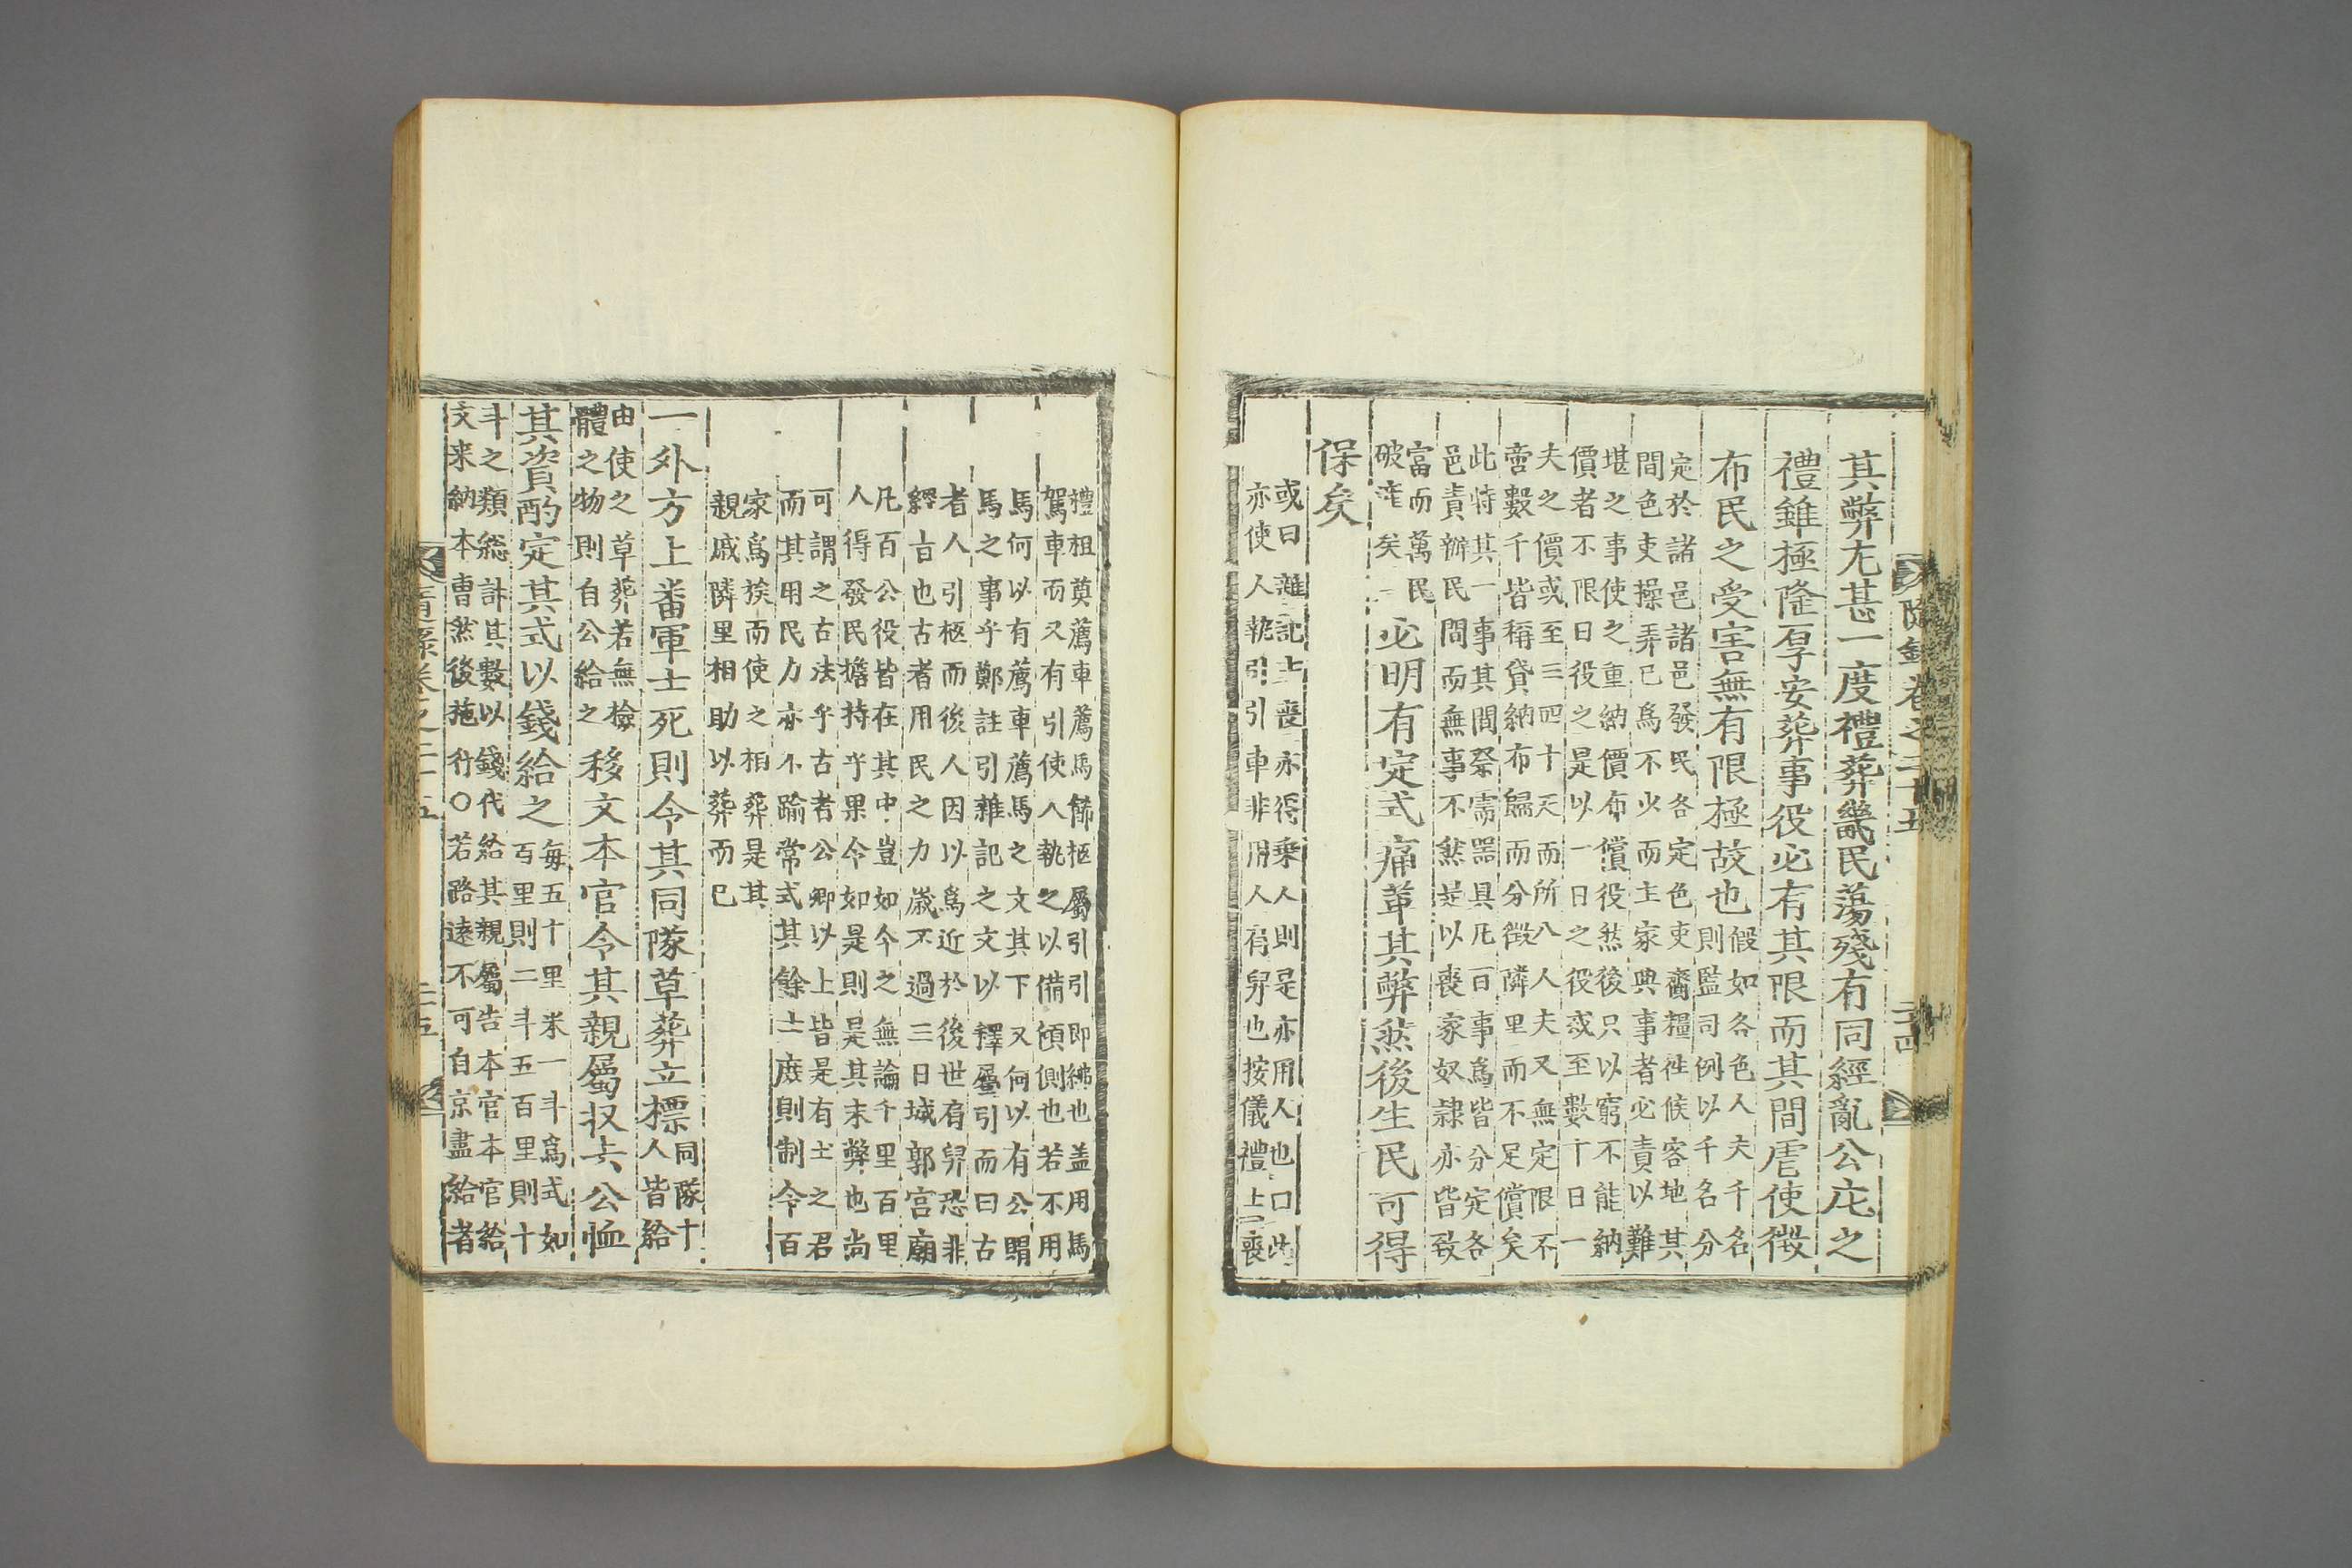 隨錄卷之二十五 二十四
其弊尤甚一度禮葬畿民蕩殘有同經亂公庀之
禮雖極隆厚安葬事役必有其限而其間虐使徵
布民之受害無有限極故也假如各色人夫千名
則監司例以千名分
定於諸邑諸邑發民各定色吏齎糧徃候客地其
間色吏操弄已爲不少而主家典事者必責以難
堪之事使之重納價布償役然後只以窮不能納
價者不限日役之是以一日之役或至數十日一
夫之價或至三四十疋而所入人夫又無定限不
啻數千皆稱貸納布歸而分徵隣里而不足償矣
此特其一事其間祭需器具凡百事爲皆分定各
邑責辦民間而無事不然是以喪家奴隷亦皆致
富而萬民
破産矣必明有定式痛革其弊然後生民可得
保矣
或曰雜記士喪亦得乘人則是亦用人也曰此
亦使人執引引車非用人肩舁也按儀禮士喪
禮祖奠薦車薦馬餙柩屬引引即紼也盖用馬
駕車而又有引使人執之以備傾側也若不用
馬何以有薦車薦馬之文其下又何以有公賵
馬之事乎鄭註引雜記之文以釋屬引而曰古
者人引柩而後人因以爲近於後世肩舁恐非
經旨也古者用民之力歲不過三日城郭宮廟
凡百公役皆在其中豈如今之無論千里百里
人得發民擔持乎果今如是則是其末弊也尚
可謂之古法乎古者公卿以上皆是有土之君
而其用民力亦不踰常式其餘士庶則制令百
家爲族而使之相葬是其
親戚隣里相助以葬而已
一外方上番軍士死則令其同隊草葬立標同隊十
人皆給
由使之草葬若無檢
體之物則自公給之移文本官令其親屬収去公恤
其資酌定其式以錢給之每五十里米一斗爲式如
百里則二斗五百里則十
斗之類総計其數以錢代給其親屬告本官本官給
文来納本曹然後施行○若路遠不可自京盡給者
隨錄卷之二十五 二十五